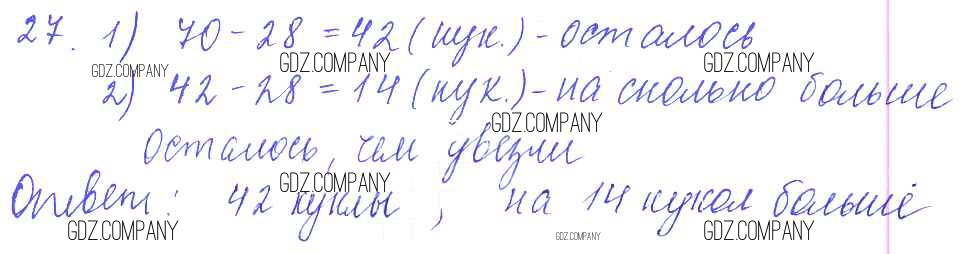 27. 1) 70 - 28 = 42 (кук.) - осталось
GDZ.COMPANY GDZ.COMPANY GDZ.COMPANY
2) 42 - 28 = 14 (кук.) - на сколько больше
GDZ.COMPANY
осталось, чем увезли
GDZ.COMPANY
Ответ: 42 куклы, на 14 кукол больше
GDZ.COMPANY GDZ.COMPANY GDZ.COMPANY